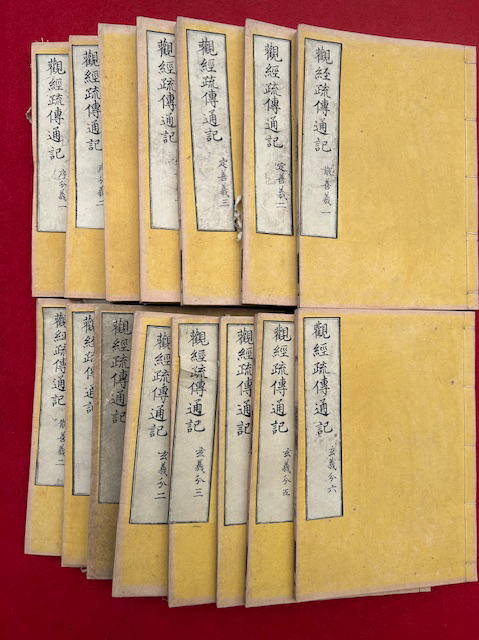 觀經疏傳通記
序分義一
觀經疏傳通記
序分義二
觀經疏傳通記
觀經疏傳通記
定善義三
觀經疏傳通記
定善義二
觀經疏傳通記
散善義一
觀經疏傳通記
散善義二
觀經疏傳通記
觀經疏傳通記
觀經疏傳通記
玄義分二
觀經疏傳通記
玄義分三
觀經疏傳通記
觀經疏傳通記
玄義分五
觀經疏傳通記
玄義分六